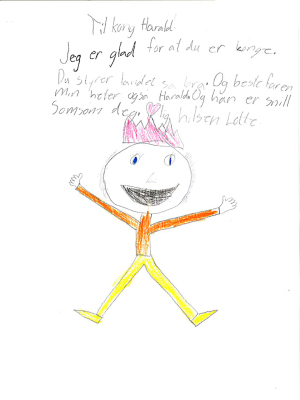 Til kong Harald
Jeg er glad for at du er konge.
Du styrer landet så bra. Og bestefaren
min heter også Harald. Og han er snill
Somsom deg. hilsen Lotte